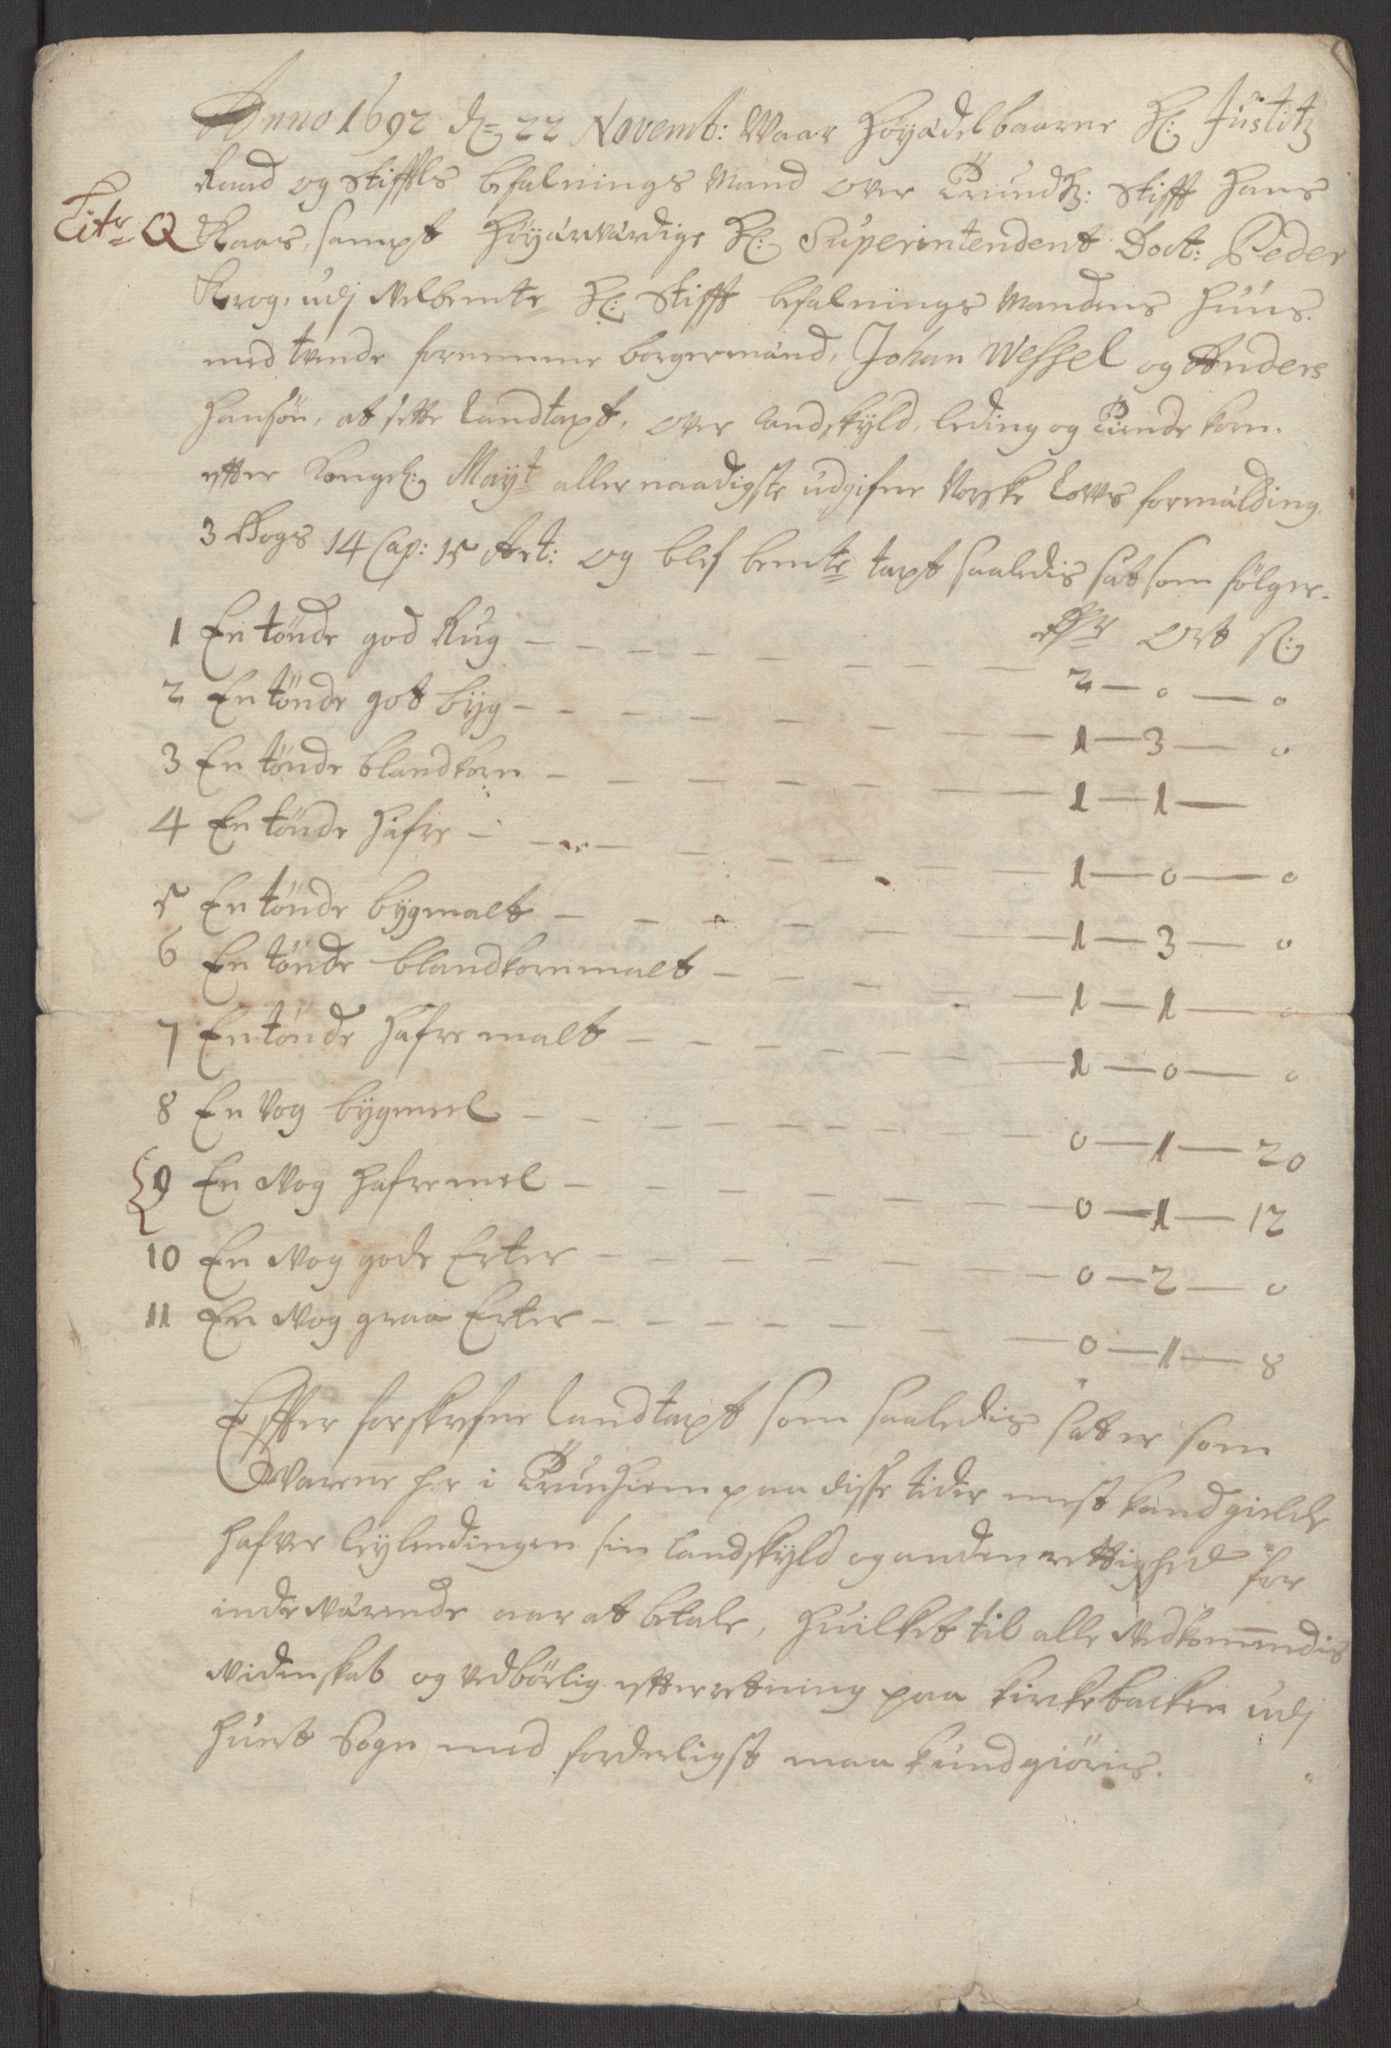 Anno 1692 d= 22 Novemb: Waar Høyædelbaarne H: Justitz
Raad og Stifftls befalnings Mand over Trundh: Stifft Hans
Litr Q Kaas, sampt Høyærværdige H: Superintendent Doct: Peder
Krog, udj Velbemte H: Stifft befalnings Mandens Huus.
med tvende fornemme borgermænd, Johan Wessel og Anders
Hansøn, at sette Landtaxt, over Landskyld, leding og Tiende korn.
efter Kongel: Mayt allernaadigste udgifne Norske Lovs formælding.
3 Bogs 14 Cap: 15 Art: og blef bemte taxt saaledis sat som følger.
Rdr Ort s:
1 En tønde god Rug — 2 — 0 — 0
2 En tønde got byg — 1 — 3 — 0
3 En tønde blandkorn — 1 — 1 —
4 En tønde hafre — 1 — 0 — 0
5 En tønde bygmalt — 1 — 3 — 0
6 En tønde blandkornmalt — 1 — 1 — 0
7 En tønde hafre malt — 1 — 0 — 0
8 En Vog bygmeel — 0 — 1 — 20
9 En Vog hafremel — 0 — 1 — 12
10 En Vog gode Erter — 0 — 2 — 0
11 En Vog graa Erter — 0 — 1 — 8
Effter forskrefne landtaxt som saaledis sat er som
Warene her i Trunhiem paa disse tider mest kand gielde
hafver leylendingen sin landskyld og anden rettighed for
inde værende aar at betale, huilket til alle Vedkommendis
Videnskab og vedbørlig efterretning paa kirkebacken udj
huert Sogn med forderligst maa kundgiøris.